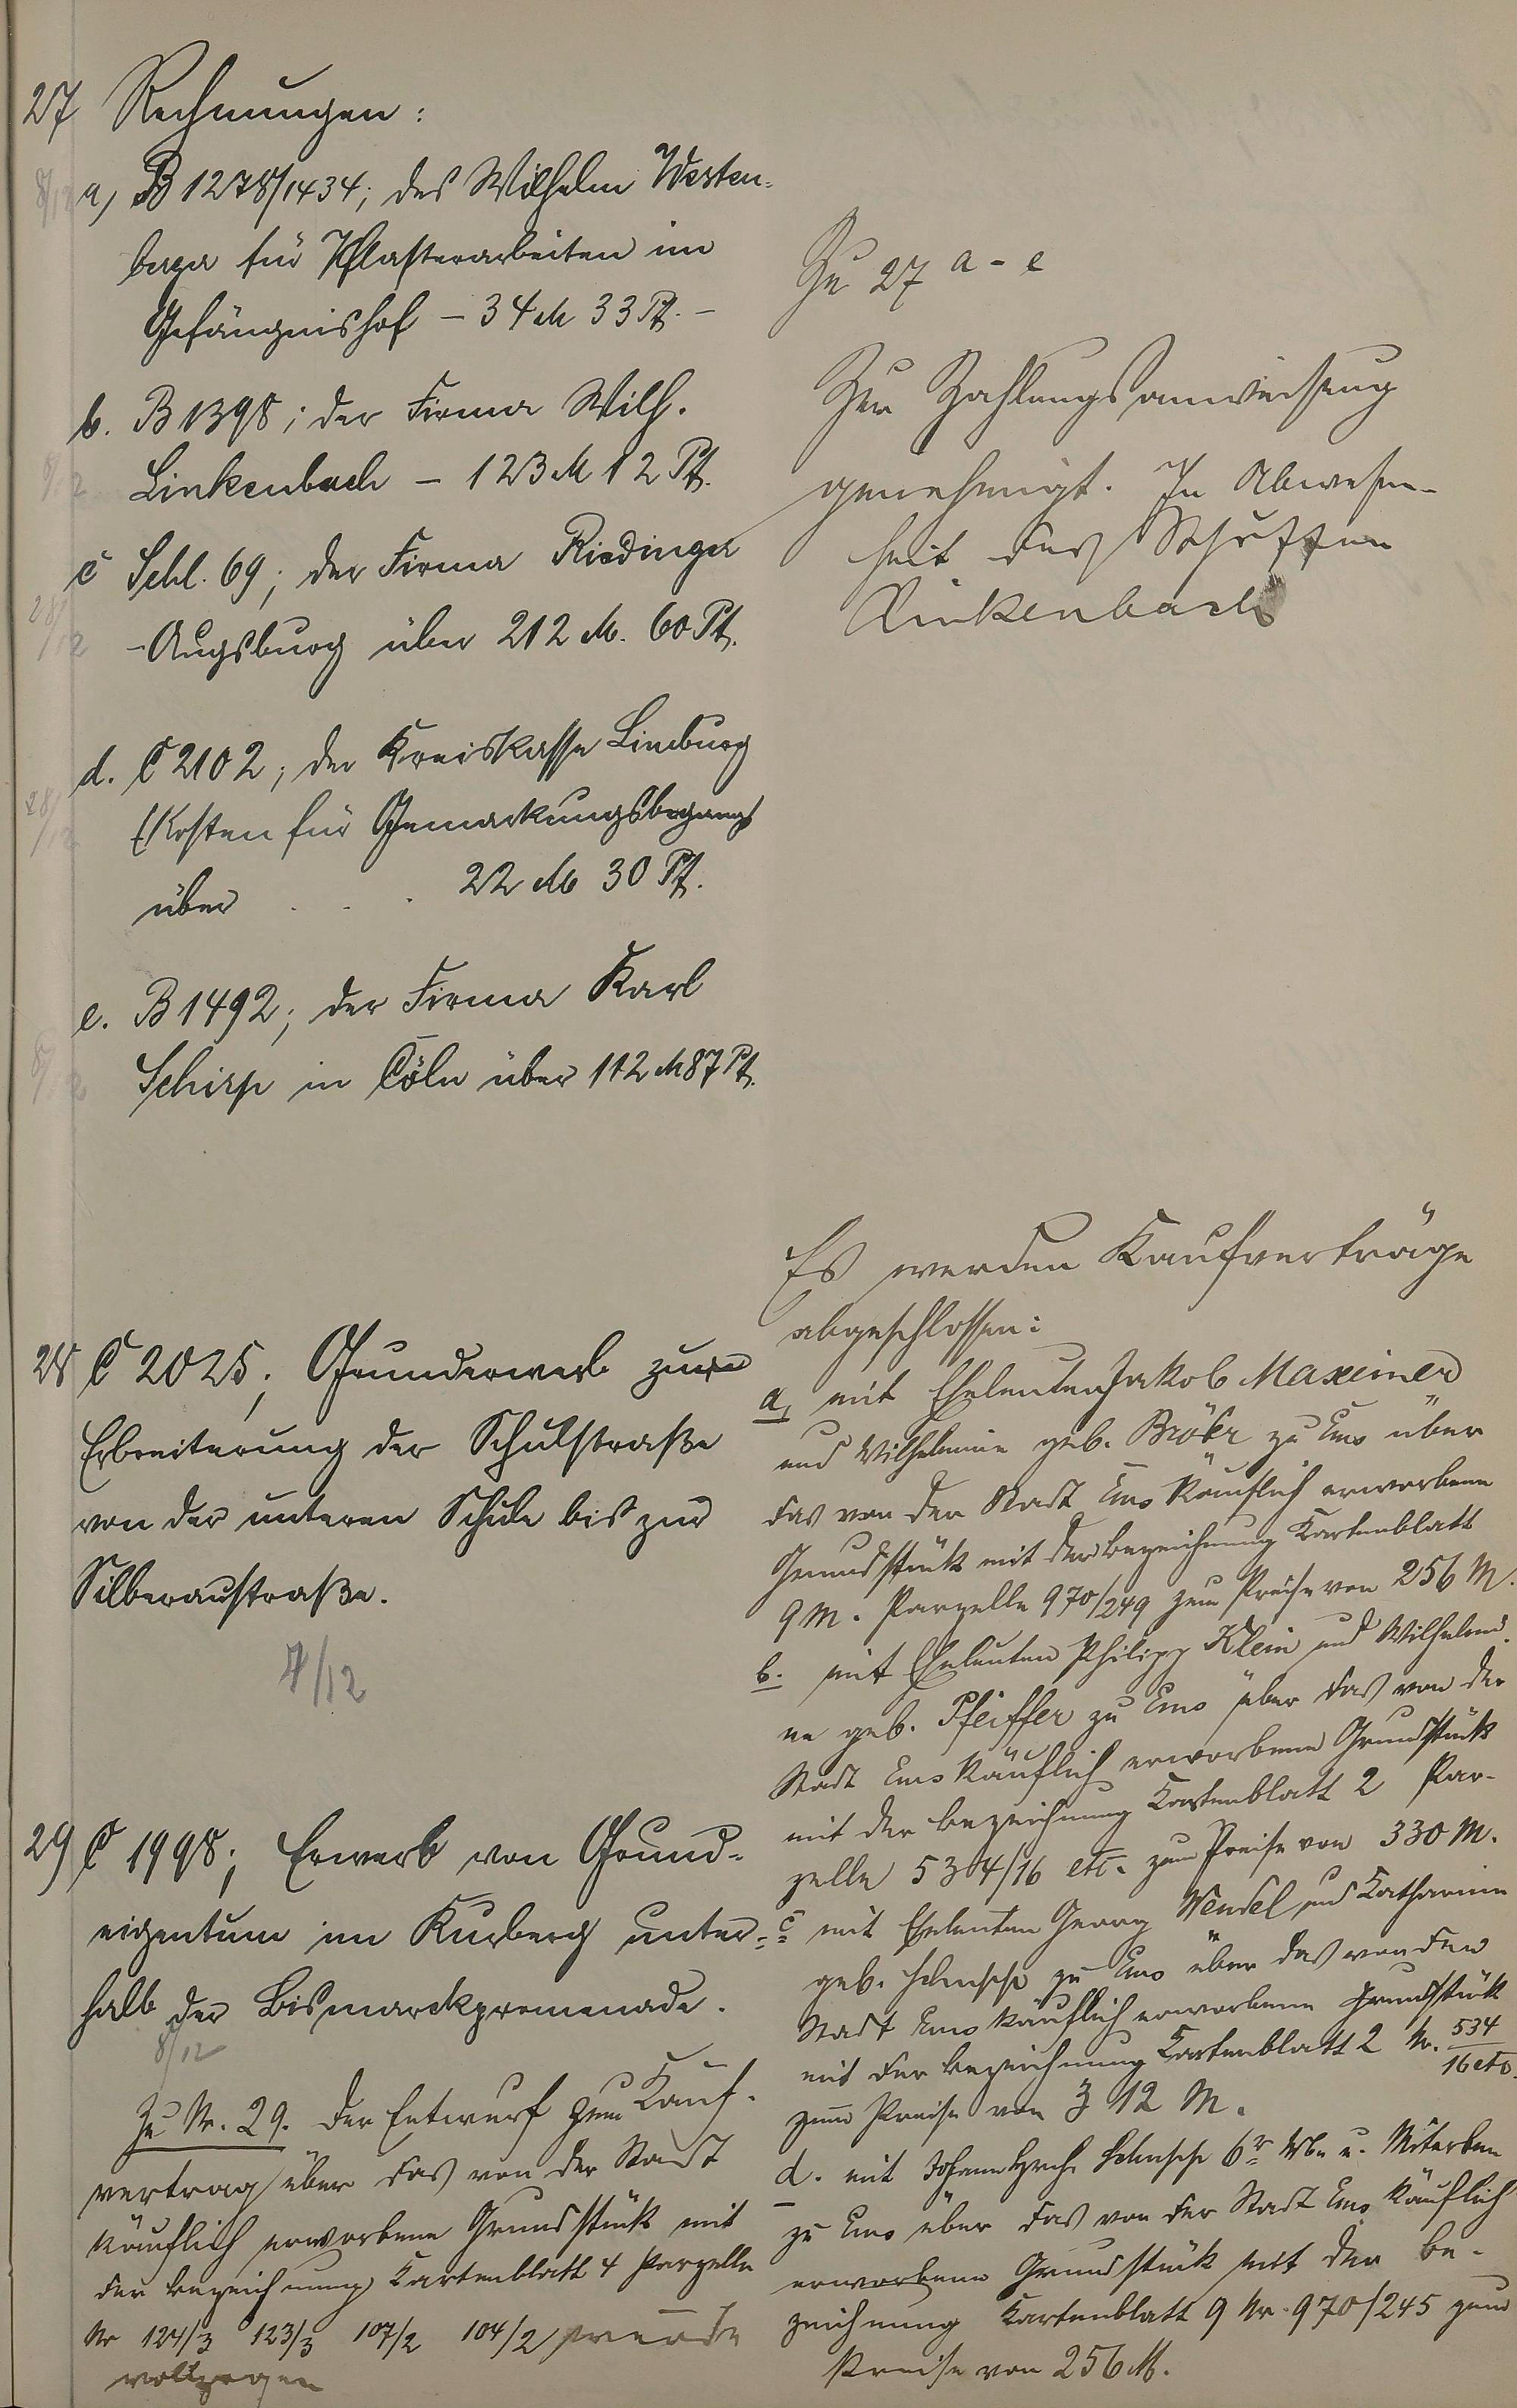 27 Rechnungen:
8/12 a) B 1278/1434; des Wilhelm Westen-
berger für Pflasterarbeiten im
Gefängnishof – 34 M 33 Pf. –
b. B 1398; der Firma Wilh.
8/12 Linkenbach – 123 M 12 Pf.
c Schl. 69; der Firma Riedinger
28/12 -Augsburg über 212 M. 60 Pf.
d. C 2102; der Kreiskasse Limburg
28/12 (Kosten für Gemarkungsbegang)
über . . . 22 M 30 Pf.
e. B 1492; der Firma Karl
8/12 Schirp in Cöln über 112 M 87 Pf.
28 C 2025; Grunderwerb zur
Erbreiterung der Schulstraße
von der unteren Schule bis zur
Silberaustraße.
7/12
29 C 1998; Erwerb von Grund-
eigentum im Kurberg unter-
halb der Bismarckpromenade.
8/12
Zu Nr. 29. Der Entwurf zum Kauf-
vertrag über das von der Stadt
käuflich erworbene Grundstück mit
der Bezeichnung Kartenblatt 4 Parzelle
Nr 124/3 123/3 107/2 104/2 wurde
vollzogen
Zu 27 a - e
Zur Zahlungsanweisung
genehmigt. In Abwesen-
heit des Schöffen
Linkenbach
Es werden Kaufverträge
abgeschlossen:
a, mit Eheleuten Jakob Maxeiner
und Wilhelmine geb. Bröhr zu Ems über
das von der Stadt Ems käuflich erworbene
Grundstück mit der Bezeichnung Kartenblatt
9 M. Parzelle 970/249 zum Preise von 256 M.
b. mit Eheleuten Philipp Klein und Wilhelmi-
ne geb. Pfeiffer zu Ems über das von der
Stadt Ems käuflich erworbene Grundstück
mit der Bezeichnung Kartenblatt 2 Par-
zelle 534/16 etc. zum Preise von 330 M.
c mit Eheleuten Georg Wendel und Katharine
geb. zu Ems über das von der
Stadt Ems käuflich erworbene Grundstück
mit der Bezeichnung Kartenblatt 2 Nr. 534/16 etc.
zum Preise von 312 M.
d. mit Johann 6r Wb. u. Miterben
zu Ems über das von der Stadt Ems käuflich
erworbene Grundstück mit der Be-
zeichnung Kartenblatt 9 Nr. 970/245 zum
Preise von 256 M.